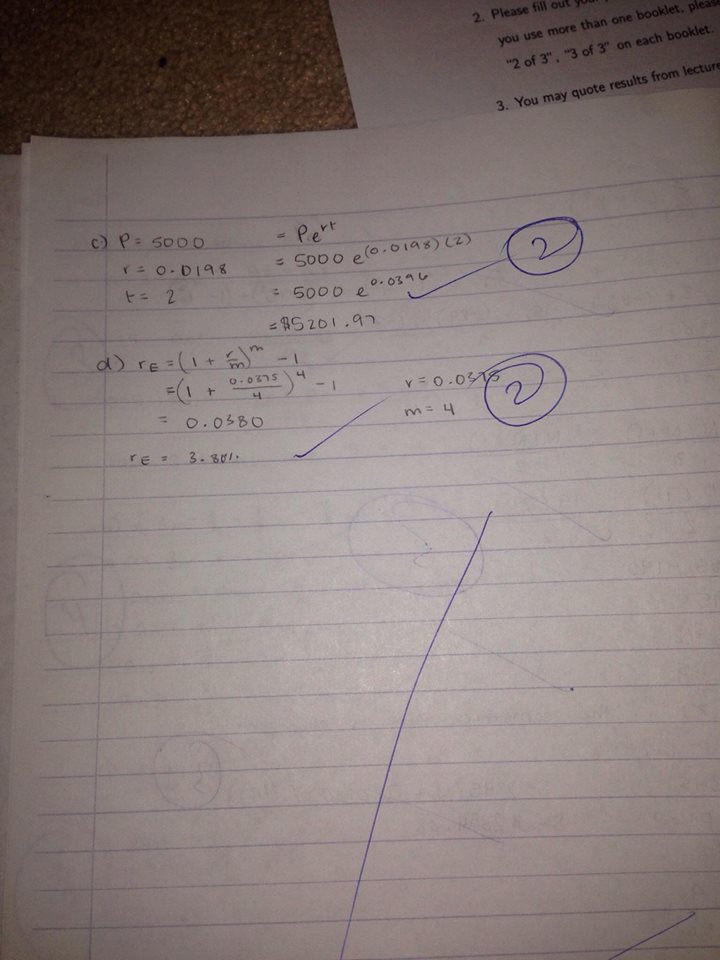 2. Please fill out
you use more than one booklet,
"2 of 3", "3 of 3" on each booklet.
3. You may quote results from lecture
c) P = 5000 = Pe^rt
r = 0.0198 = 5000 e^(0.0198)(2)
t = 2 = 5000 e^0.0396
= $5201.97
2
d) rE = (1 + r/m)^m - 1
= (1 + 0.0375/4)^4 - 1 r = 0.0375
= 0.0380 m = 4
rE = 3.80%
2